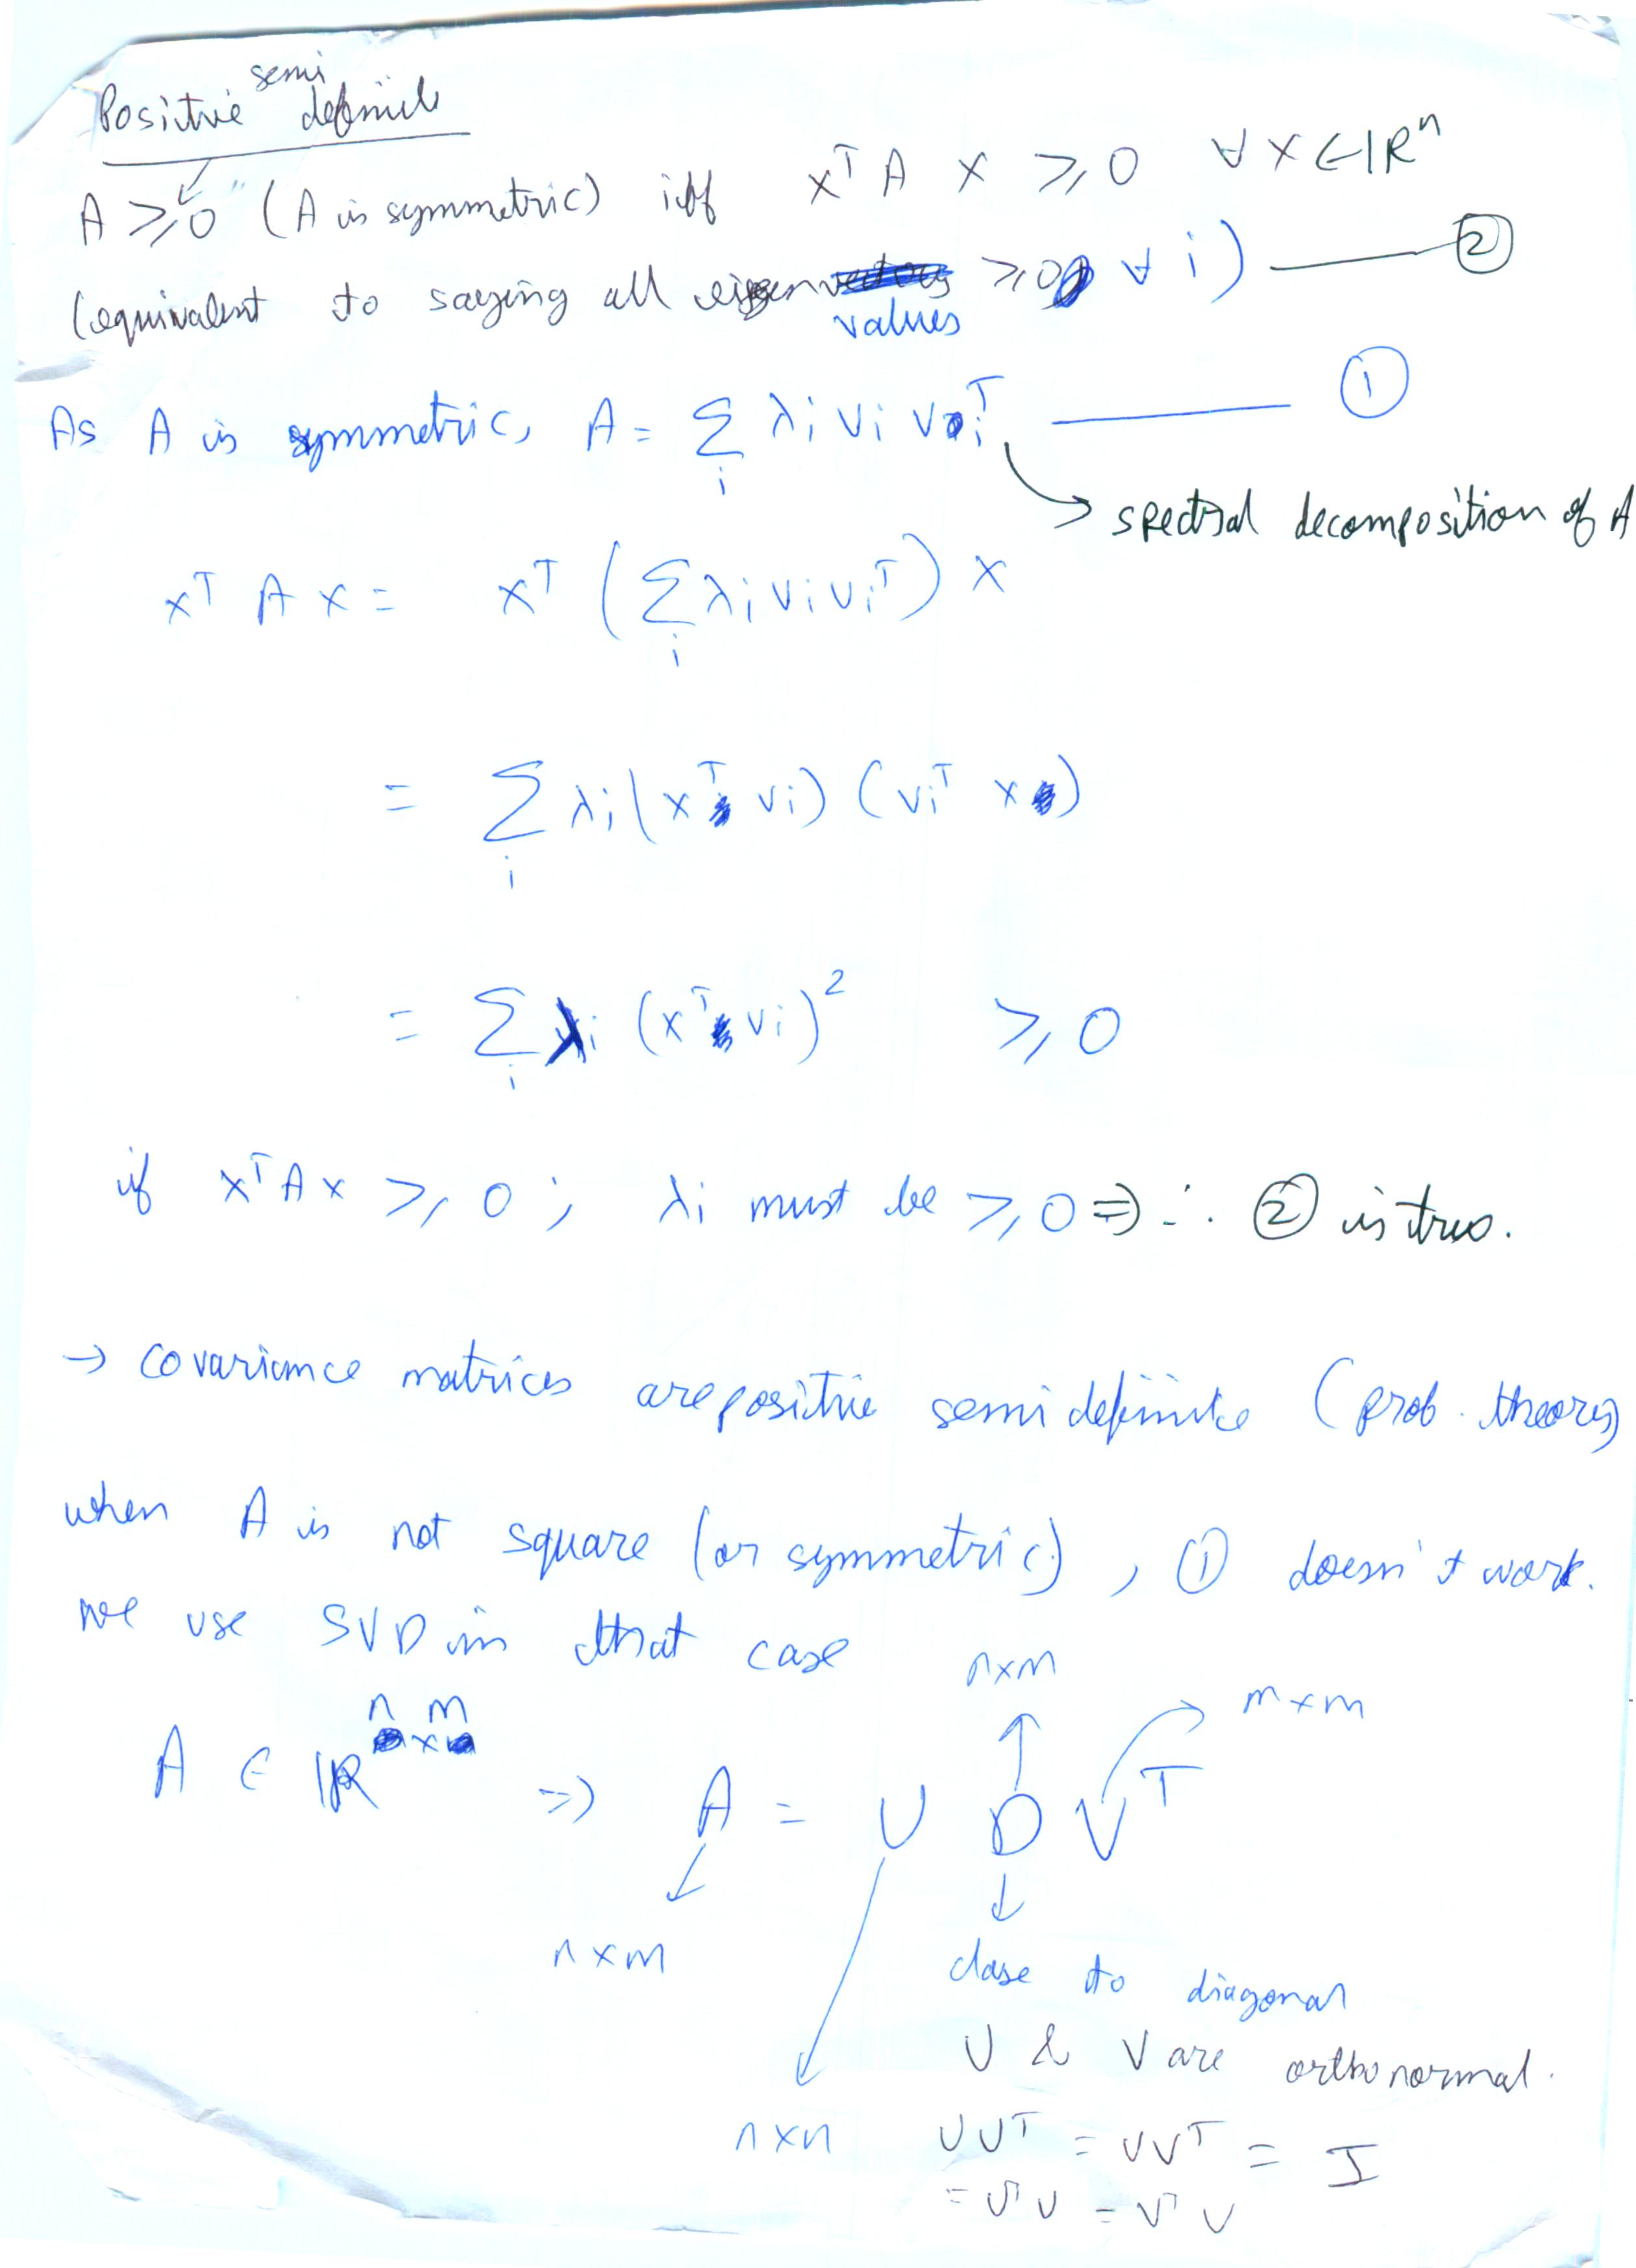 Positive semi definite
A ≥ 0 (A is symmetric) iff x^T A x ≥ 0 ∀ x ∈ ℝ^n
(equivalent to saying all eigen values ≥ 0 ∀ i) —— ②
As A is symmetric, A = Σ_i λi vi vi^T —— ①
→ spectral decomposition of A
x^T A x = x^T (Σ_i λi vi vi^T) x
= Σ_i λi (x^T vi) (vi^T x)
= Σ_i λi (x^T vi)^2 ≥ 0
if x^T A x ≥ 0 ; λi must be ≥ 0 ⇒ ∴ ② is true.
→ covariance matrices are positive semi definite (prob. theory)
when A is not square (or symmetric), ① doesn't work.
we use SVD in that case
n×m
m×m
A ∈ ℝ^{n×m} ⇒ A = U D V^T
n×m
close to diagonal
U & V are orthonormal.
n×n
UU^T = VV^T = I
= U^T U = V^T V